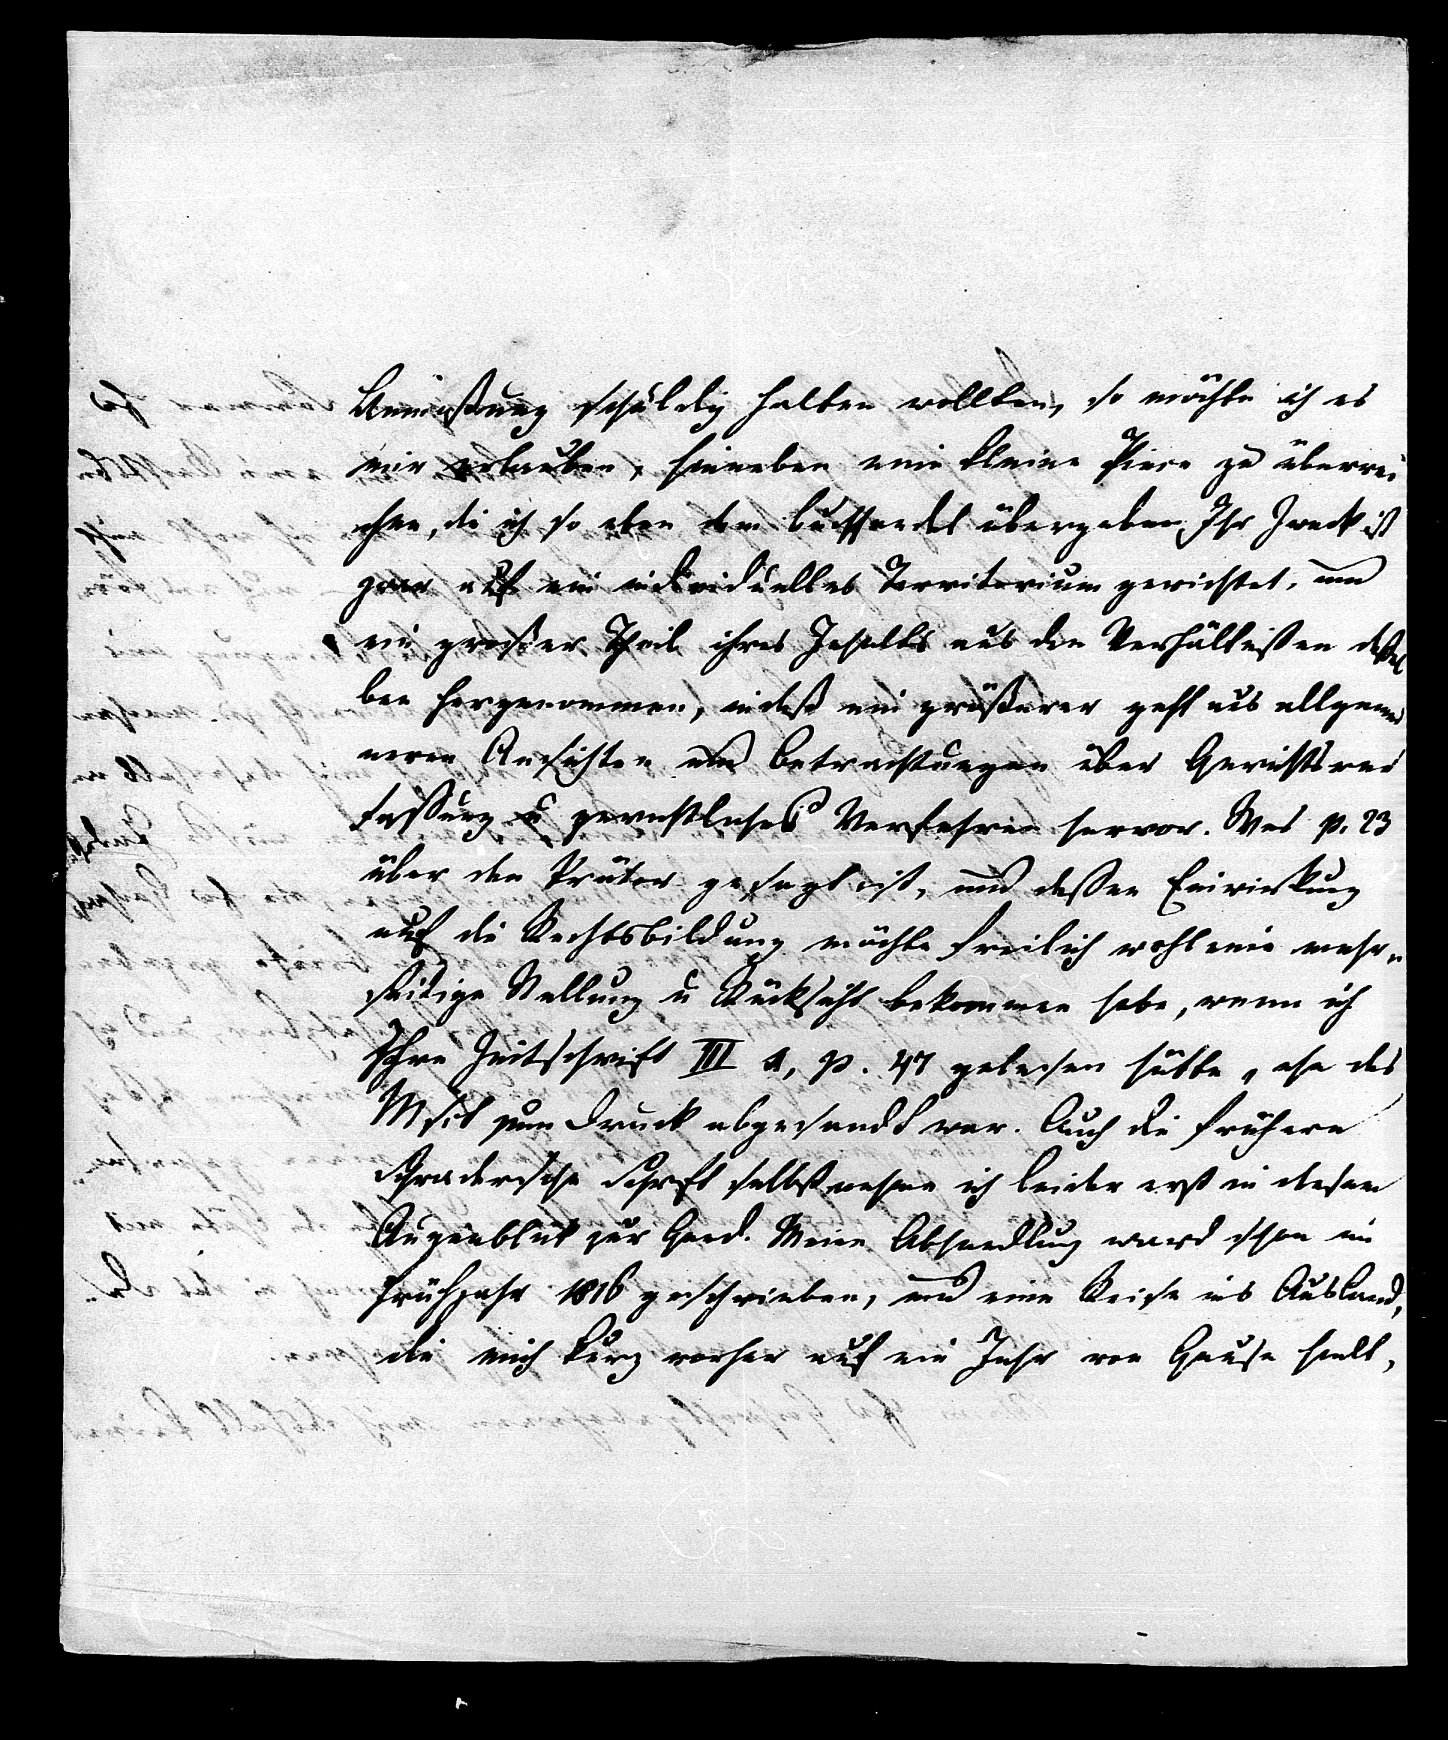 Anmaßung schuldig halten wollten, so möchte ich es
mir erlauben, hieneben eine kleine Piece zu überrei
chen, die ich so eben dem Buchhandel übergeben. Ihr Zweck ist
zwar auf ein individuelles Territorium gerichtet, und
ein großer Theil ihres Inhalts aus den Verhältnißen deßel
ben hergenommen, indeß ein größerer geht aus allgemei
neren Ansichten und Betrachtungen über Gerichtsver
faßung u gerichtliches Verfahren hervor. Was p. 23
über den Prätor gesagt ist, und deßen Einwirkung
auf die Rechtsbildung möchte freilich wohl eine mehr„
seitige Stellung u Rücksicht bekommen habe, wenn ich
Ihre Zeitschrift III a, p. 47 gelesen hätte, ehe das
Msct zum Druck abgesandt war. Auch die frühere
Schradersche Schrift selbst nehme ich leider erst in diesem
Augenblick zur Hand. Meine Abhandlung ward schon im
Frühjahr 1816 geschrieben, und eine Reise ins Ausland,
die mich kurz vorher auf ein Jahr von Hause hielt,